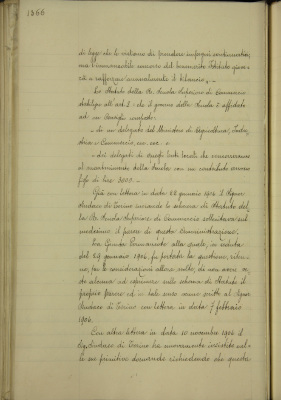 1366
di legge che le vietano di prendere impegni continuativi,
ma l'encomiabile senno del benemerito Istituto giove-
rà a rafforzare annualmente il bilancio. -
Lo Statuto della R. Scuola Superiore di Commercio
stabilisce all'art. 3 - che il governo della Scuola è affidato
ad un Consiglio composto:
- di un delegato del Ministero di Agricoltura, Indu-
stria e Commercio, ecc. ecc. -
- dei delegati di quegli Enti locali che concorreranno
al mantenimento della Scuola con un contributo annuo
fisso di lire 3000. -
Già con lettera in data 22 gennaio 1906 il Signor
Sindaco di Torino inviando lo schema di Statuto del-
la R. Scuola Superiore di Commercio sollecitava sul
medesimo il parere di questa Amministrazione.
La Giunta Comunale alla quale, in seduta
del 29 gennaio 1906, fu portata la questione, riten-
ne, per le considerazioni allora svolte, di non avere
alcuna ad esprimere sullo schema di Statuto il
proprio parere ed in tale senso venne scritto al Signor
Sindaco di Torino con lettera in data 7 febbraio
1906.
Con altra lettera in data 10 novembre 1906 il
Sig. Sindaco di Torino ha nuovamente insistito nel-
le sue primitive domande richiedendo che questa